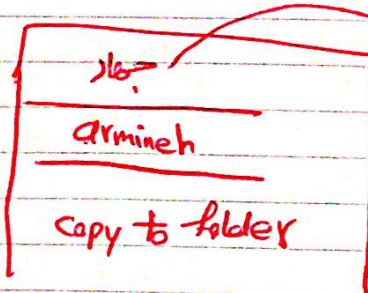 armineh
copy to folder